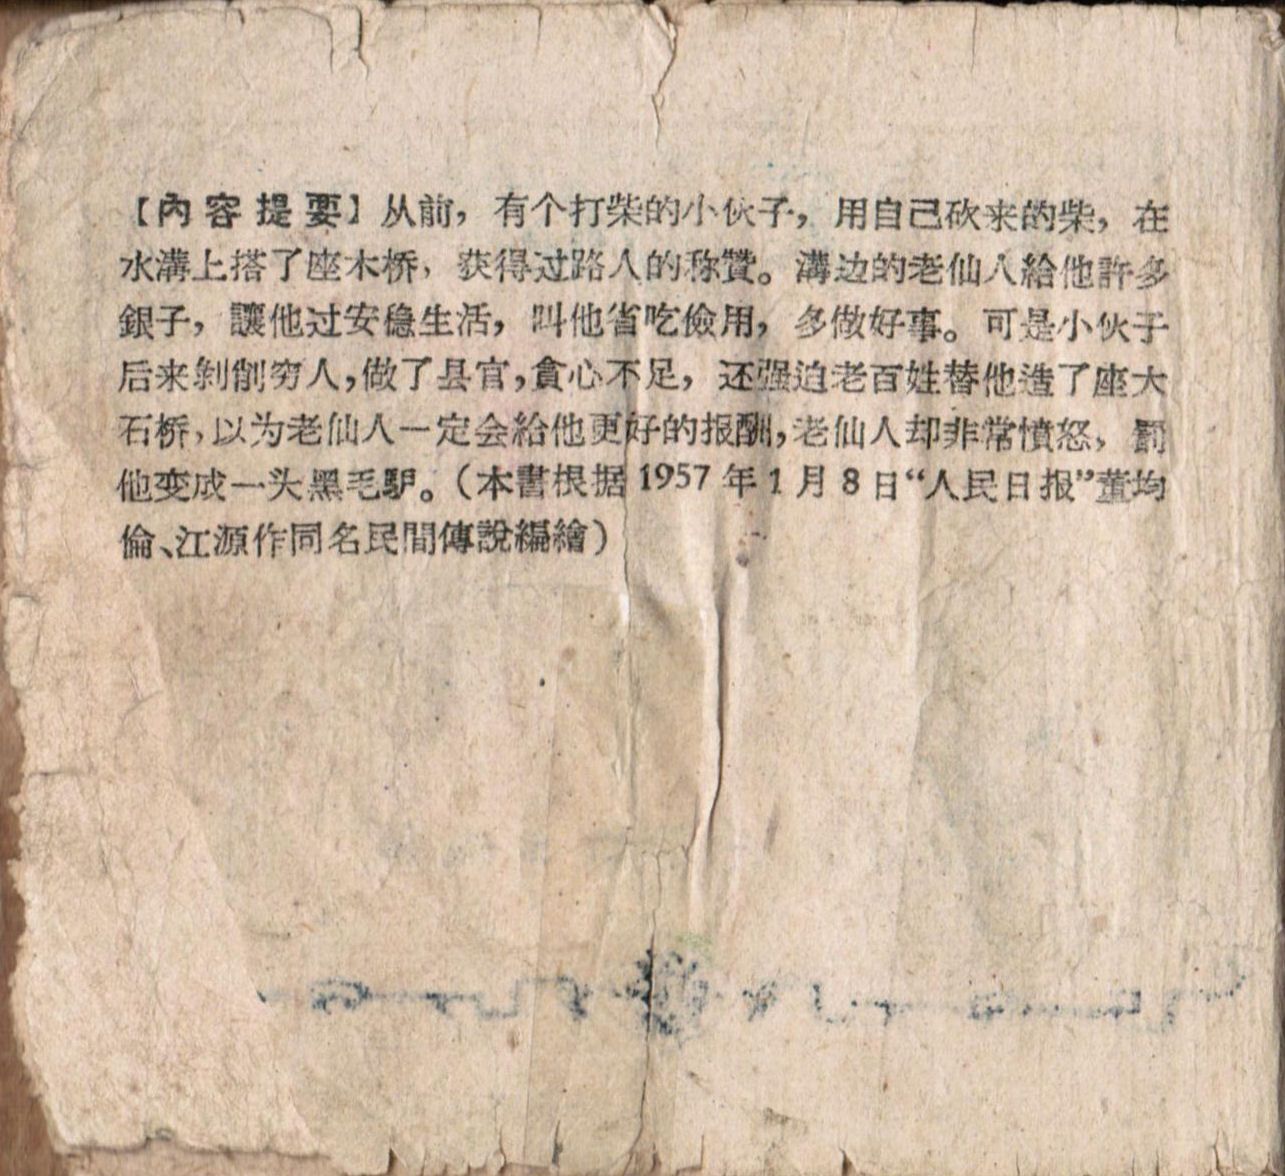 【內容提要】从前，有个打柴的小伙子，用自己砍来的柴，在
水溝上搭了座木桥，获得过路人的称赞。溝边的老仙人給他許多
銀子，讓他过安稳生活，叫他省吃儉用，多做好事。可是小伙子
后来剝削穷人，做了县官，貪心不足，还强迫老百姓替他造了座大
石桥，以为老仙人一定会給他更好的报酬，老仙人却非常憤怒，罰
他变成一头黑毛馿。（本書根据1957年1月8日“人民日报”董均
倫、江源作同名民間傳說編繪）